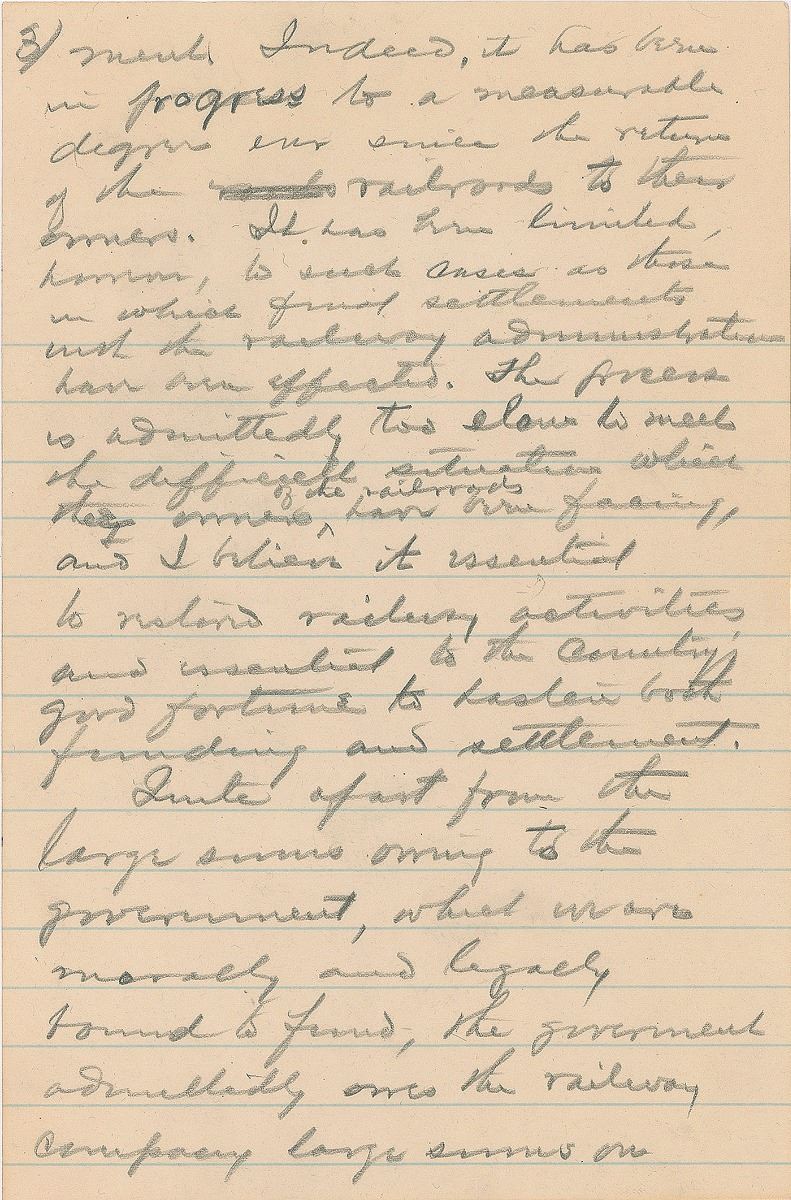 3/ ment. Indeed, it has been
in progress to a measurable
degree ever since the return
of the railroads to their
owners. It has been limited,
however, to such cases as those
in which final settlements
with the railway administration
have been effected. The process
is admittedly too slow to meet
the difficult situation which
the owners of the railroads have been facing,
and I believe it essential
to restored railway activities,
and essential to the country's
good fortune to hasten both
funding and settlement.
Quite apart from the
large sums owing to the
government, which we are
morally and legally
bound to fund, the goverment
admittedly owes the railway
company large sums on